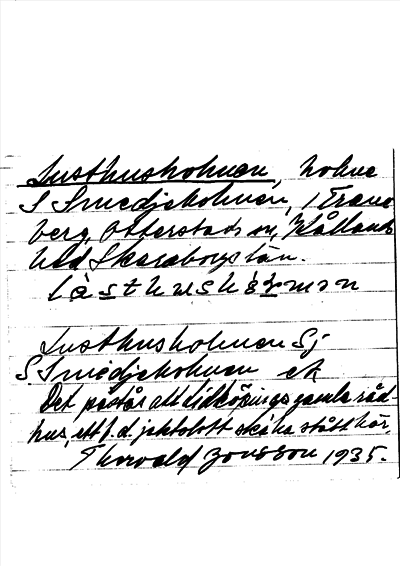 Lusthusholmen, holme
S Smedjeholmen, 1 Trane
berg, Otterstads sn, Kållands
hd Skaraborgs län.
Lusthusholmen Sj
S. Smedjeholmen ek
Det påstås att Lidköpings gamla råd-
hus, ett f.d. jaktslott ska ha stått här.
Thorvald Jonsson 1935.